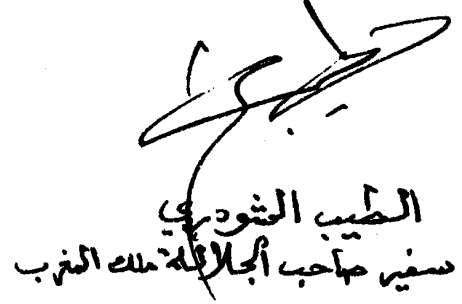 الطيب الشودري
سفير صاحب الجلالة ملك المغرب